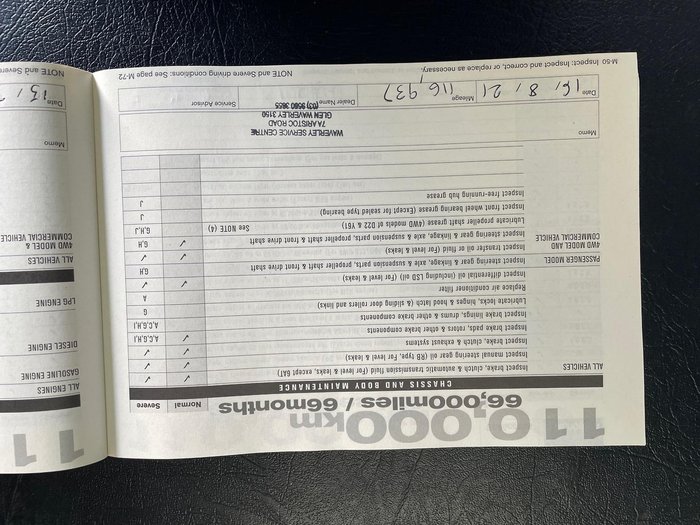 110,000km
66,000miles / 66months
Normal
Severe
CHASSIS AND BODY MAINTENANCE
ALL VEHICLES
Inspect brake, clutch & automatic transmission fluid (For level & leaks, except 6AT) ✓ ✓
Inspect manual steering gear oil (RB type, For level & leaks) ✓ ✓
Inspect brake, clutch & exhaust systems ✓ ✓
Inspect brake pads, rotors & other brake components ✓ A,C,G,H,I
Inspect brake linings, drums & other brake components A,C,G,H,I
Lubricate locks, hinges & hood latch (& sliding door rollers and links) G
Replace air conditioner filter A
Inspect differential oil (including LSD oil) (For level & leaks) ✓ ✓
PASSENGER MODEL
Inspect steering gear & linkage, axle & suspension parts, propeller shaft & front drive shaft G,H
4WD MODEL AND
COMMERCIAL VEHICLE
Inspect transfer oil or fluid (For level & leaks) ✓ ✓
Inspect steering gear & linkage, axle & suspension parts, propeller shaft & front drive shaft ✓ G,H
Lubricate propeller shaft grease (4WD models of D22 & Y61) See NOTE (4) G,H,J
Inspect front wheel bearing grease (Except for sealed type bearing) J
Inspect free-running hub grease J
Memo
WAVERLEY SERVICE CENTRE
7A ARISTOC ROAD
GLEN WAVERLEY 3150
(03) 9560 3655
Date 16, 8, 21
Mileage 116,937
Dealer Name
Service Advisor
M-50 Inspect: Inspect and correct, or replace as necessary.
NOTE and Severe driving conditions: See page M-72
11
ALL ENGINES
GASOLINE ENGINE
DIESEL ENGINE
LPG ENGINE
ALL VEHICLES
4WD MODEL &
COMMERCIAL VEHICLE
Memo
Date
15,
NOTE and Severe